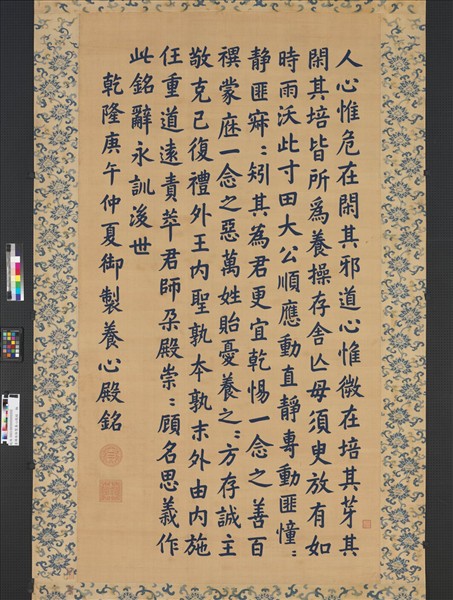 人心惟危在閑其邪道心惟微在培其芽其
閑其培皆所爲養操存舍亾毋須臾放有如
時雨沃此寸田大公順應動直靜專動匪憧〻
静匪寐〻矧其為君更宜乾惕一念之善百
禩蒙庥一念之惡萬姓貽憂養之〻方存誠主
敬克己復禮外王内聖孰夲孰末外由内施
任重道遠責萃君師朶殿崇〻顧名思義作
此銘辭永訓後世
乾隆庚午仲夏御製養心殿銘